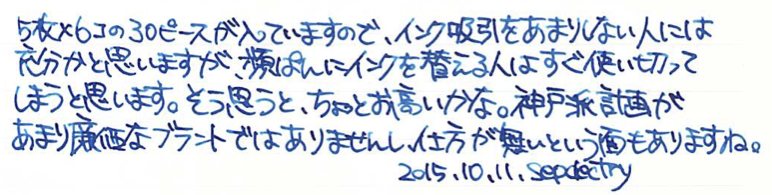 5枚×6コの30ピースが入っていますので、インク吸引をあまりしない人には
充分かと思いますが、頻ぱんにインクを替える人はすぐ使い切って
しまうと思います。そう思うと、ちょっとお高いかな。神戸派計画が
あまり廉価なブランドではありませんし、仕方が無いという面もありますね。
2015.10.11. sepdectry